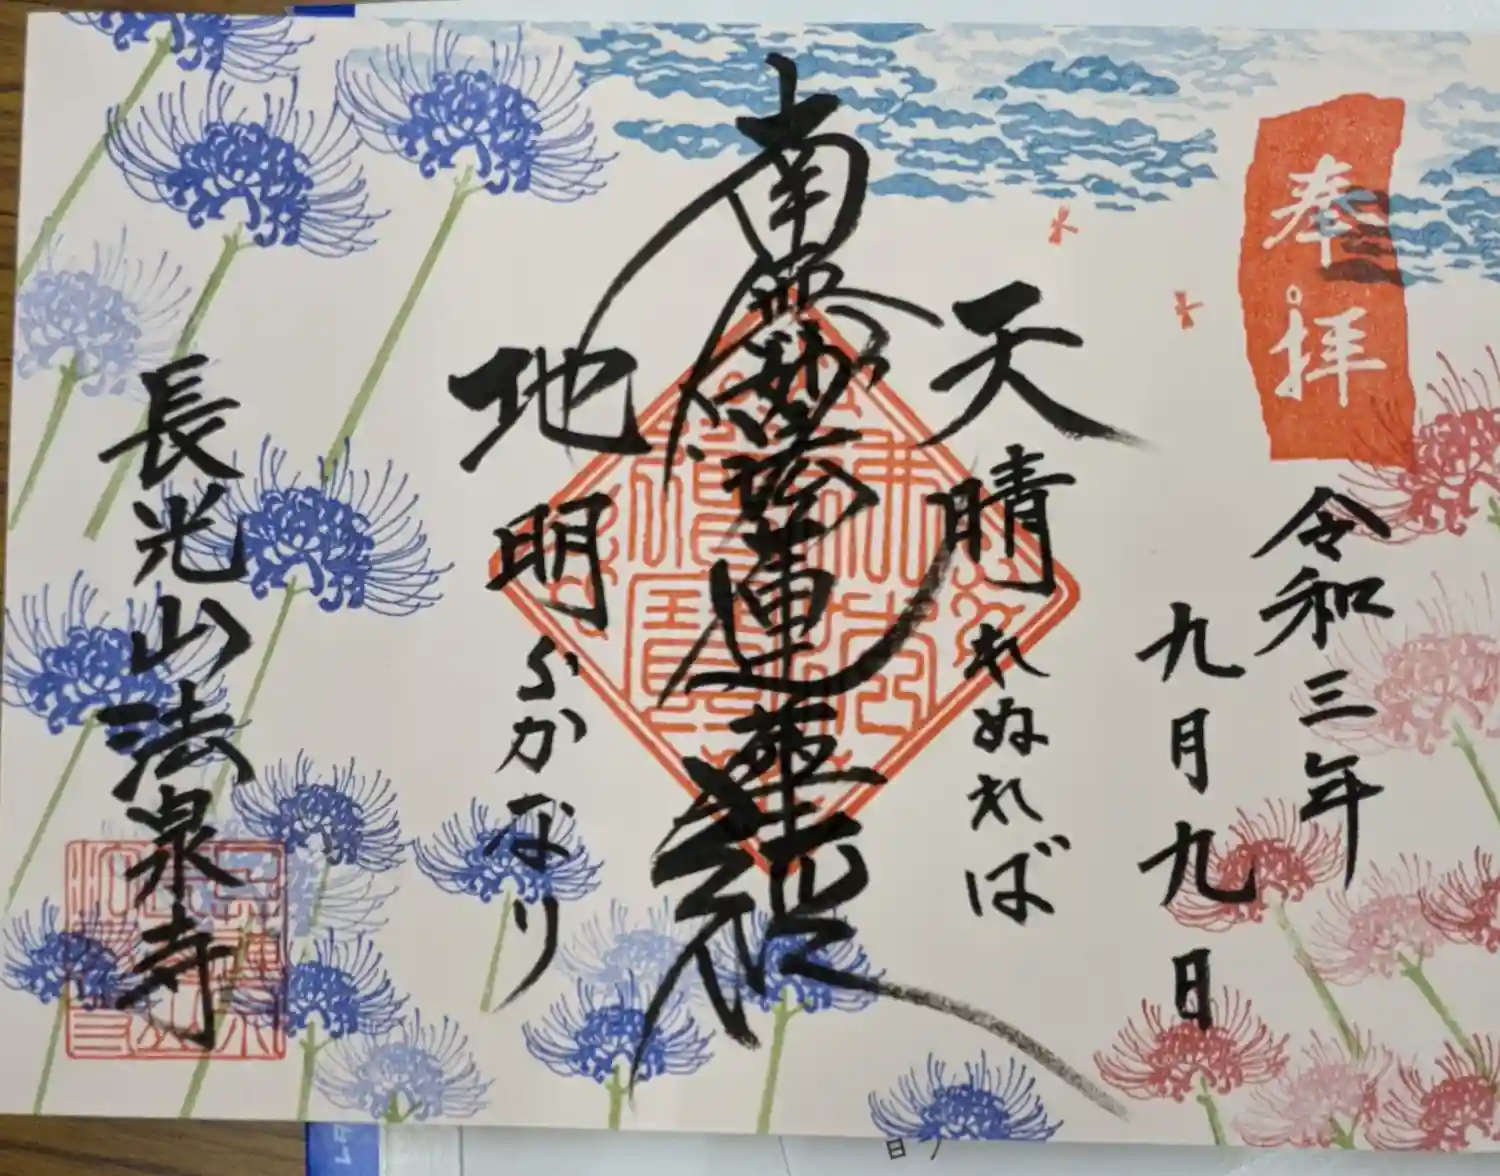 奉拝
令和三年
九月九日
天晴れぬれば
南無妙法蓮華経
地明らかなり
長光山法泉寺